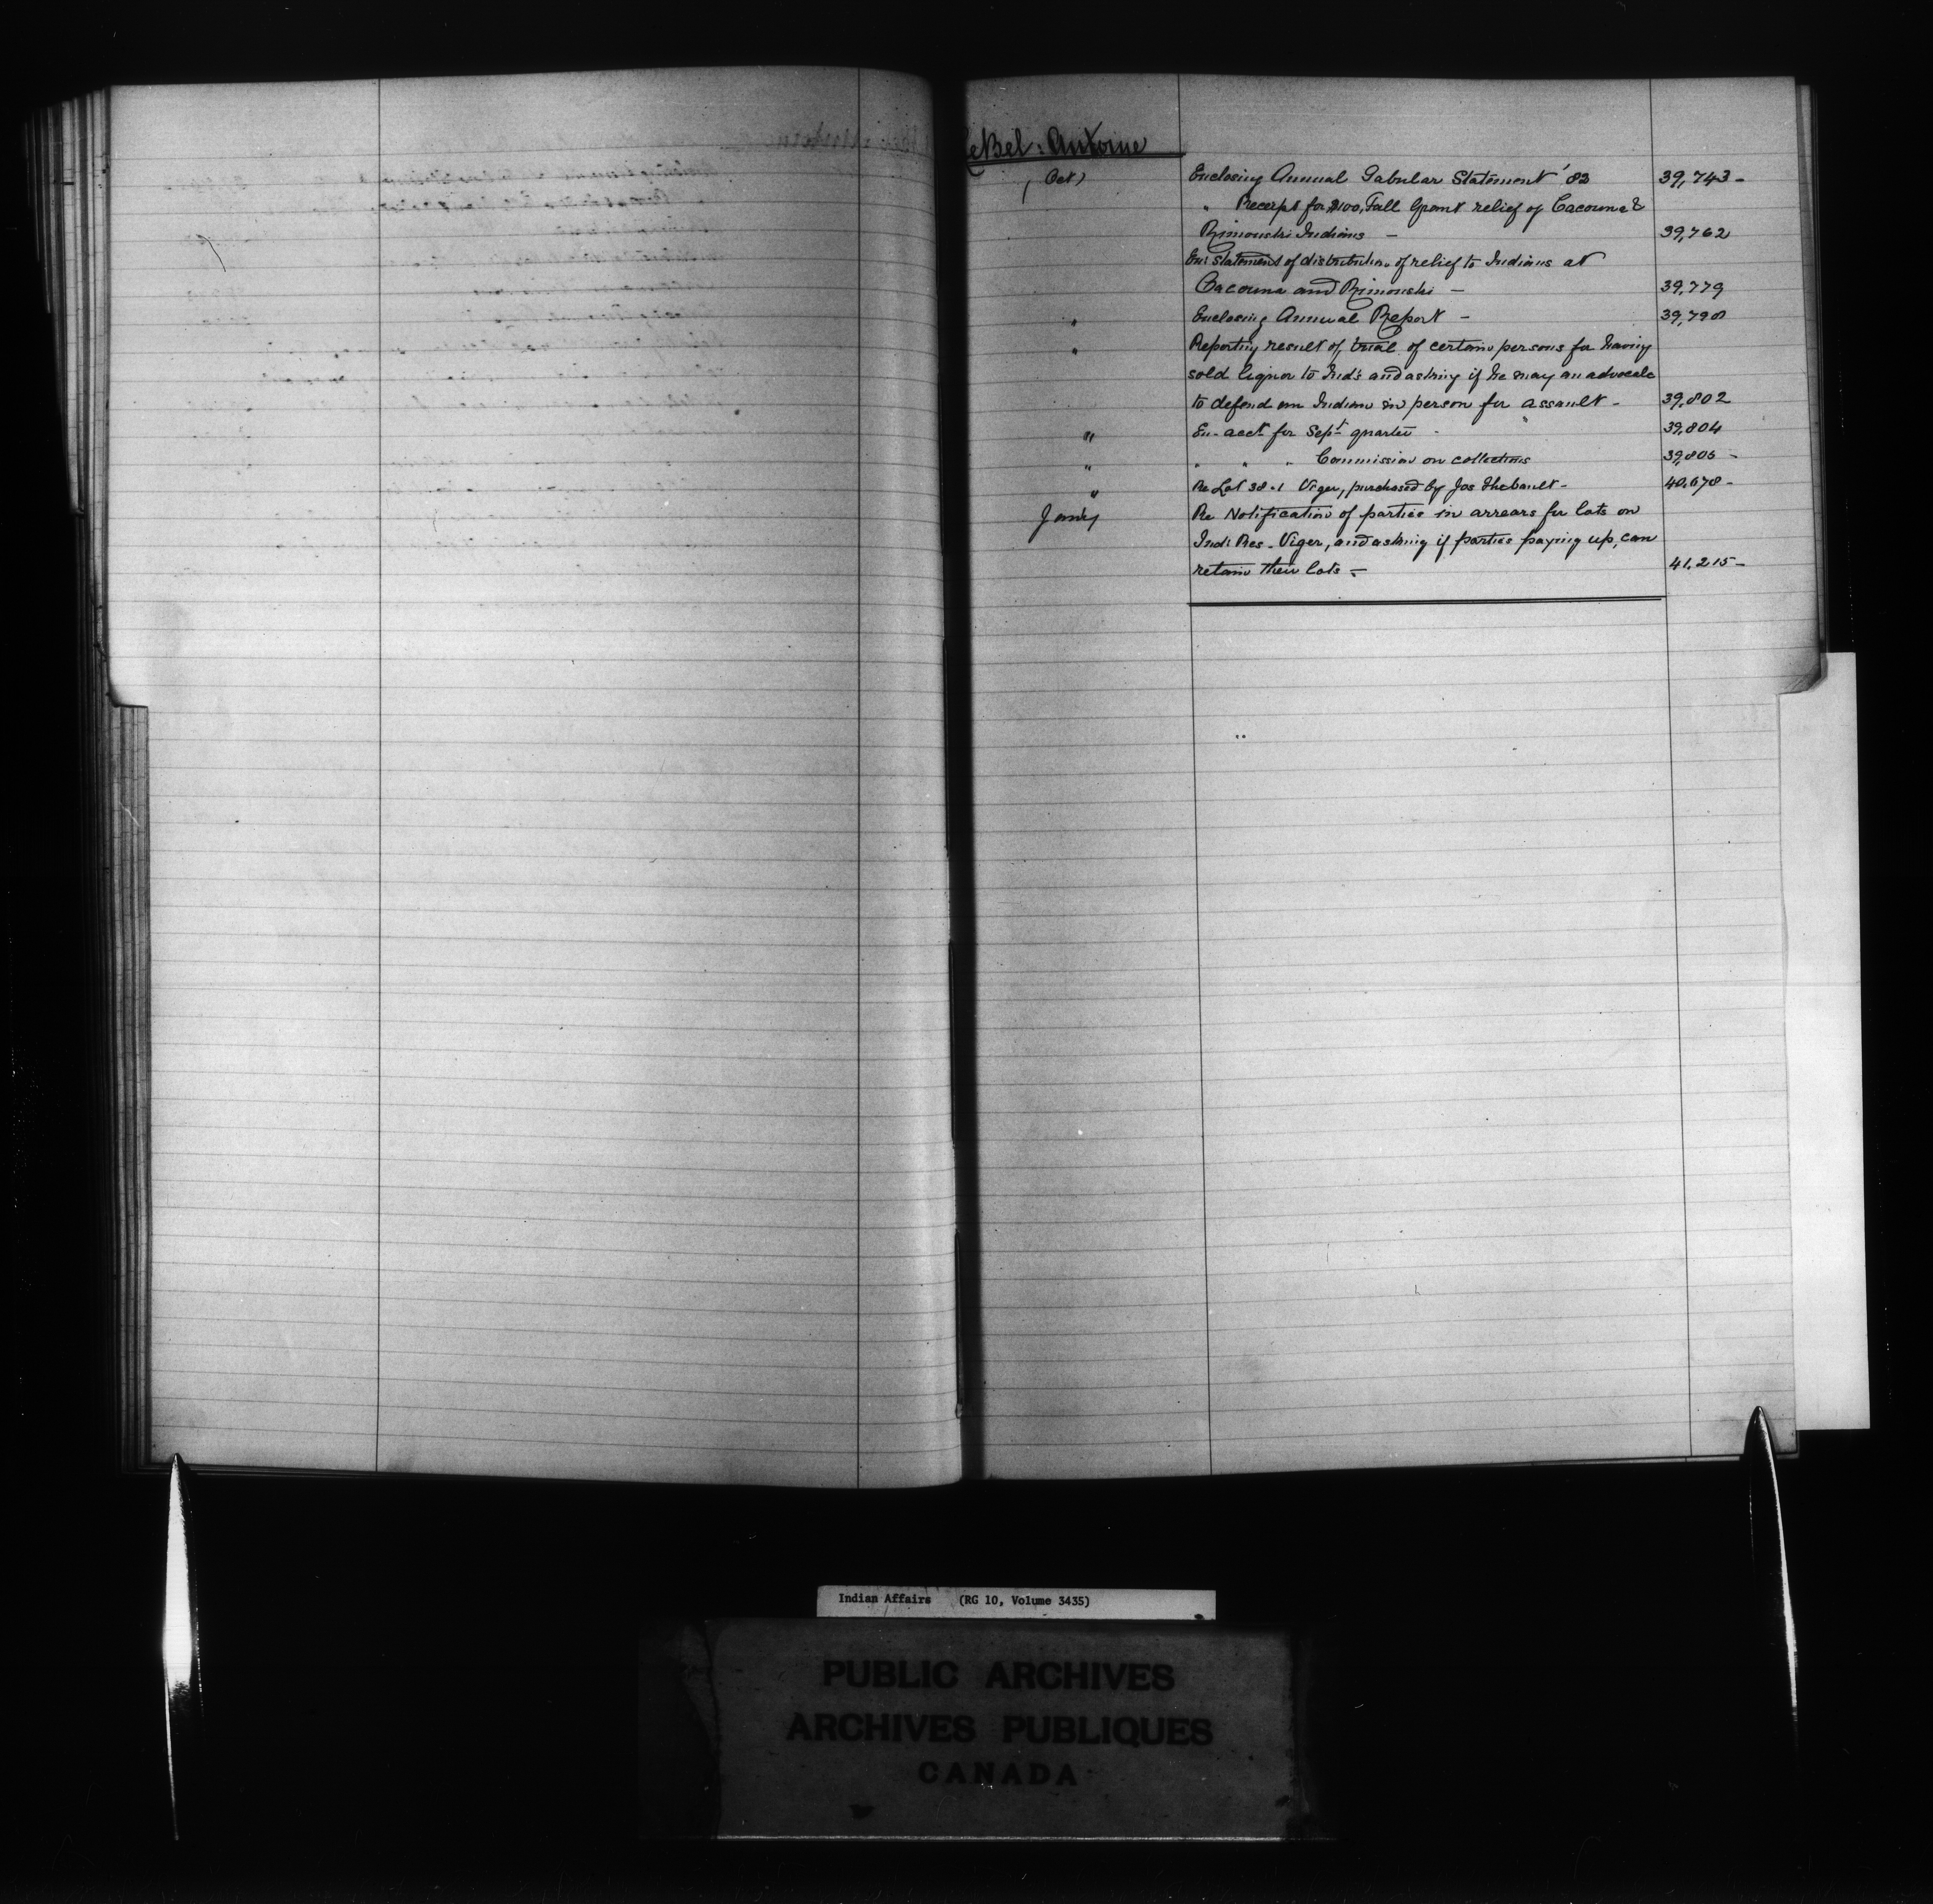 LeBel: Antoine
Oct Enclosing Annual Tabular Statement '83 39,743-
" Receipt for $100, Fall Grant relief of Cacouna &
Rimouski Indians - 39,762
Enc statement of distribution of relief to Indians at
Cacouna and Rimouski - 39,779
" Enclosing Annual Report - 39,798
" Reporting result of trial of certain persons for having
sold liquor to Inds and asking if he may an advocate
to defend an Indian in person for assault - 39,802
" En- acct for Sept quarter - 39,804
" " " " Commission on collections 39,805 -
" Re Lot 38-1 Viger, purchased by Jos Thebault - 40,678-
Jany Re Notification of parties in arrears for lots on
Indi Res - Viger, and asking if parties paying up, can
retain their lots - 41,215-
Indian Affairs (RG 10, Volume 3435)
PUBLIC ARCHIVES
ARCHIVES PUBLIQUES
CANADA